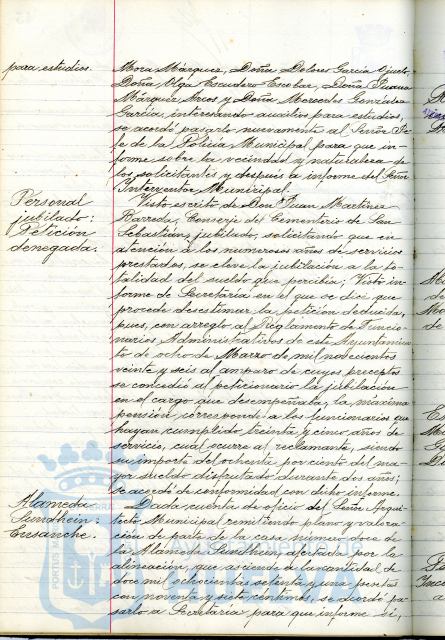 para estudios.
Mora Márquez, Doña Dolores García
Doña Olga Escudero Escobar, Doña Juana
Márquez Arcos y Doña Mercedes González
García, interesando auxilios para estudios,
se acordó pasarlo nuevamente al Señor Je-
fe de la Policía Municipal para que in-
forme sobre la vecindad y naturaleza de
los solicitantes y después a informe del Señor
Interventor Municipal.
Personal
jubilado:
Petición
denegada.
Visto escrito de Don Juan Martínez
Barreda, Conserje del Cementerio de San
Sebastián, jubilado, solicitando que en
atención a los numerosos años de servicios
prestados, se eleve la jubilación a la to-
talidad del sueldo que percibía; Visto in-
forme de Secretaría en el que se dice que
procede desestimar la petición deducida,
pues, con arreglo al Reglamento de Funcio-
narios Administrativos de este Ayuntamien-
to de ocho de Marzo de mil novecientos
veinte y seis al amparo de cuyos preceptos
se concedió al peticionario la jubilación
en el cargo que desempeñaba, la máxima
pensión corresponde a los funcionarios que
hayan cumplido treinta y cinco años de
servicio, cual ocurre al reclamante, siendo
su importe del ochenta por ciento del ma-
yor sueldo disfrutado durante dos años;
Se acordó de conformidad con dicho informe.
Alameda
Sundheim:
Ensanche.
Dada cuenta de oficio del Señor Arqui-
tecto Municipal remitiendo plano y valora-
ción de parte de la casa número doce de
la Alameda Sundheim, afectada por la
alineación, que asciende a la cantidad de
doce mil ochocientas setenta y una pesetas
con noventa y siete céntimos, se acordó pa-
sarlo a Secretaría para que informe si,